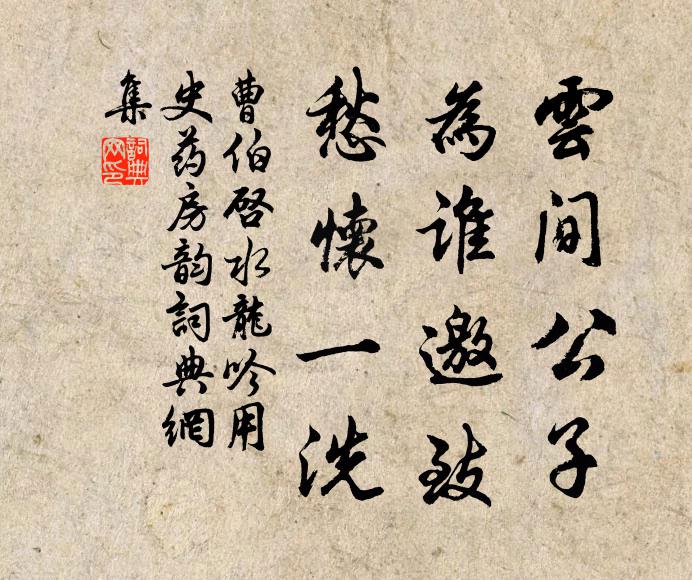 雲間公子
為誰邀致
愁懷一洗
曹伯啓水龍吟用
史药房韵詞典網
集
詞典網印